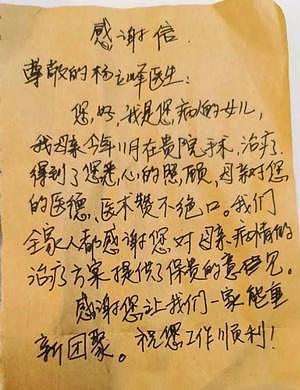 感谢信
尊敬的杨立峰医生:
您好,我是您病人的女儿,
我母亲今年11月在贵院手术,治疗
得到了您悉心的照顾,母亲对您
的医德、医术赞不绝口。我们
全家人都感谢您对母亲病情的
治疗方案提供了保贵的意见。
感谢您让我们一家能重
新团聚。祝您工作顺利!